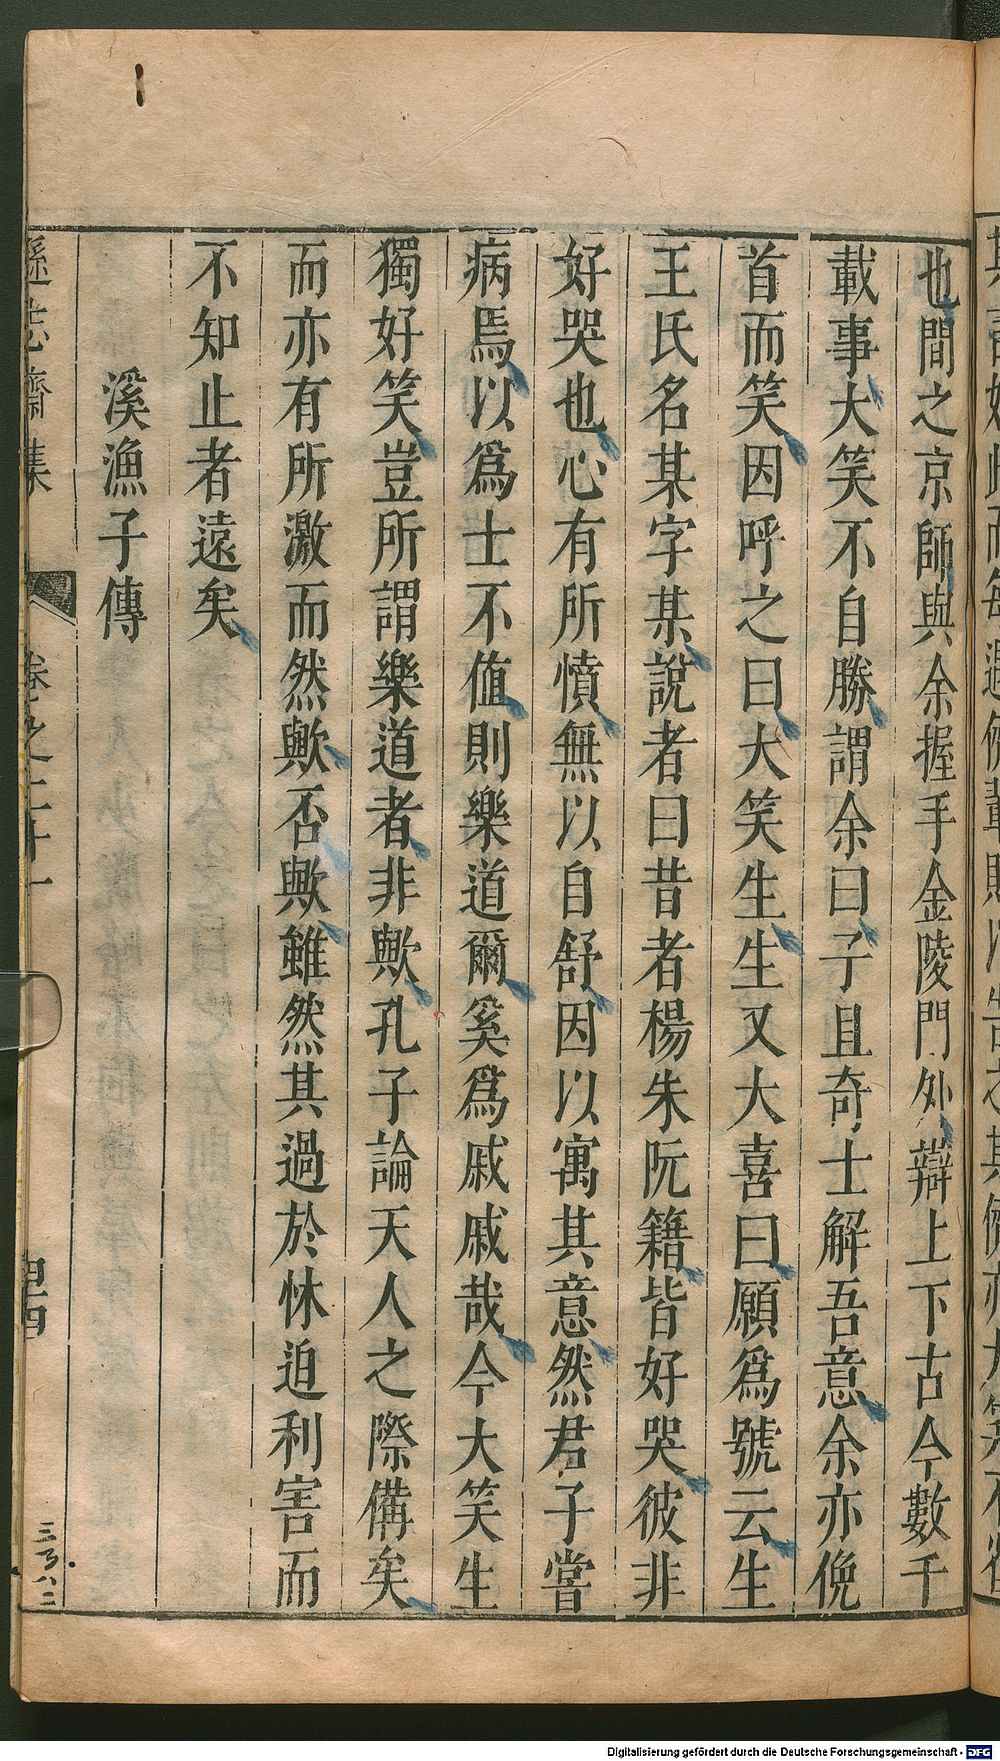 也間之京師與余握手金陵門外辯上下古今數千
載事大笑不自勝謂余曰子且奇士解吾意余亦俛
首而笑因呼之曰大笑生生又大喜曰願爲號云生
王氏名某字某說者曰昔者楊朱阮籍皆好哭彼非
好哭也心有所憤無以自舒因以寓其意然君子嘗
病焉以爲士不值則樂道爾奚爲戚戚哉今大笑生
獨好笑豈所謂樂道者非歟孔子論天人之際備矣
而亦有所激而然歟否歟雖然其過於怵迫利害而
不知止者遠矣
溪漁子傳
遜志齋集
卷之二十一
四四
Digitalisierung gefördert durch die Deutsche Forschungsgemeinschaft - DFG